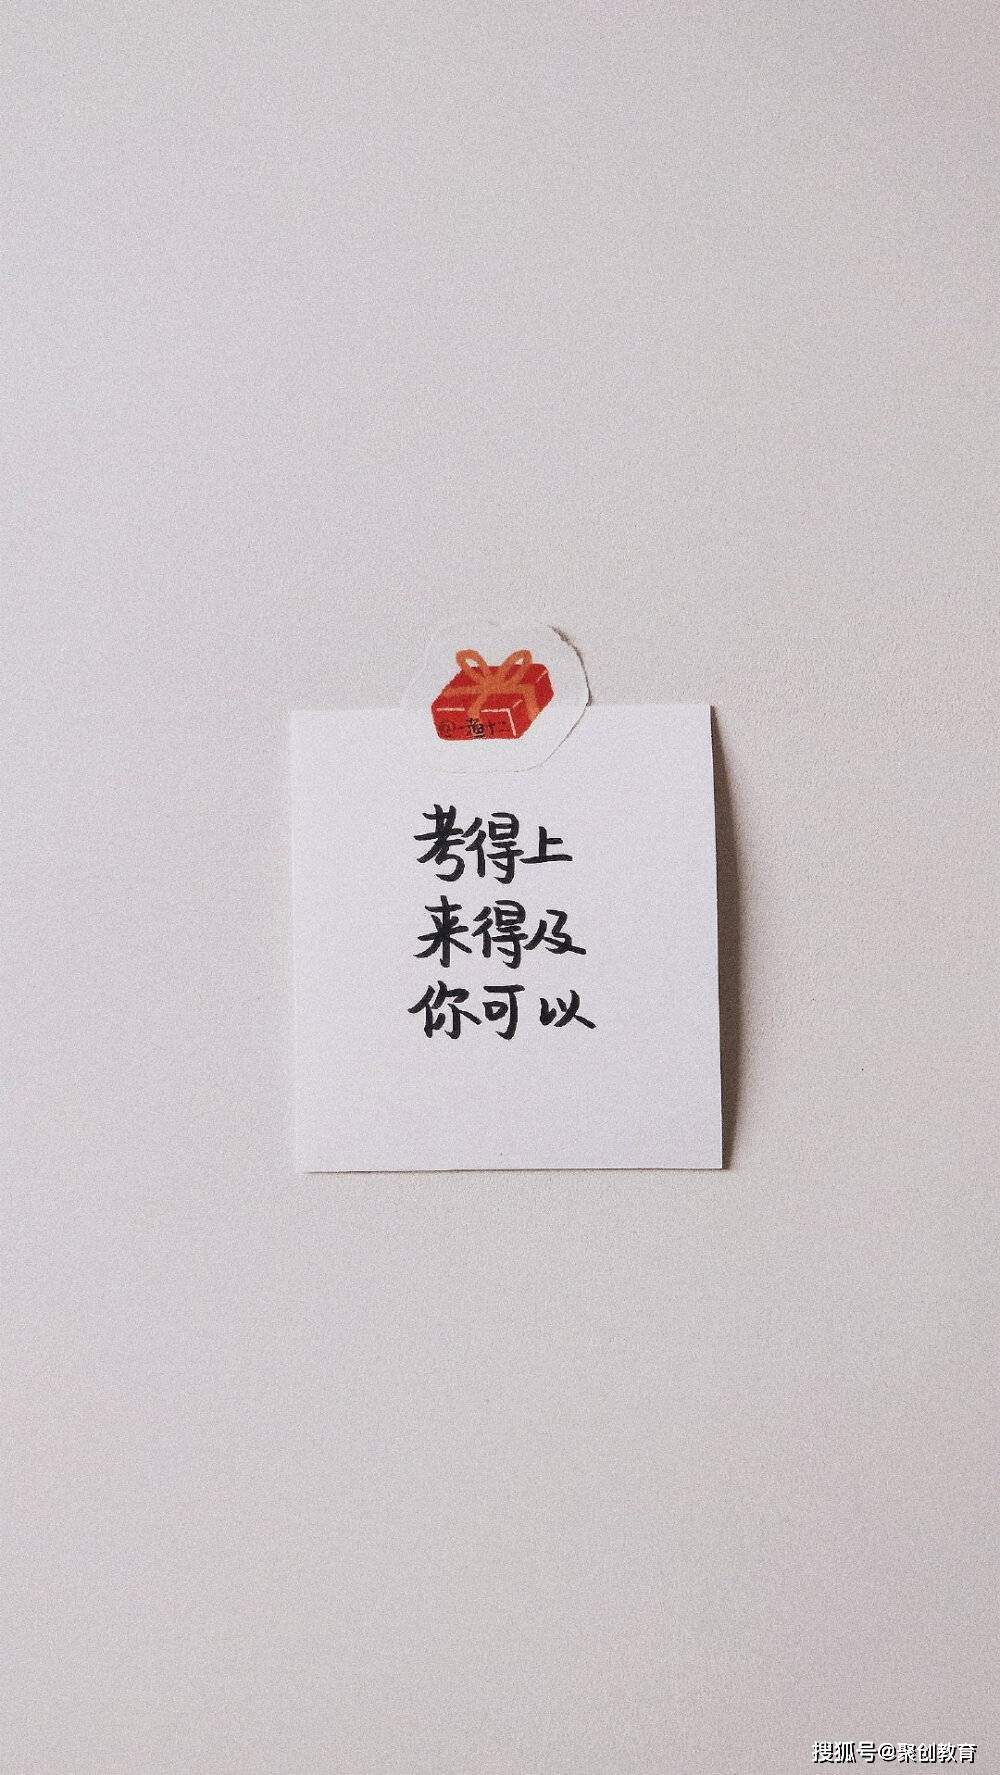 @一渔十二
考得上
来得及
你可以
搜狐号@聚创教育